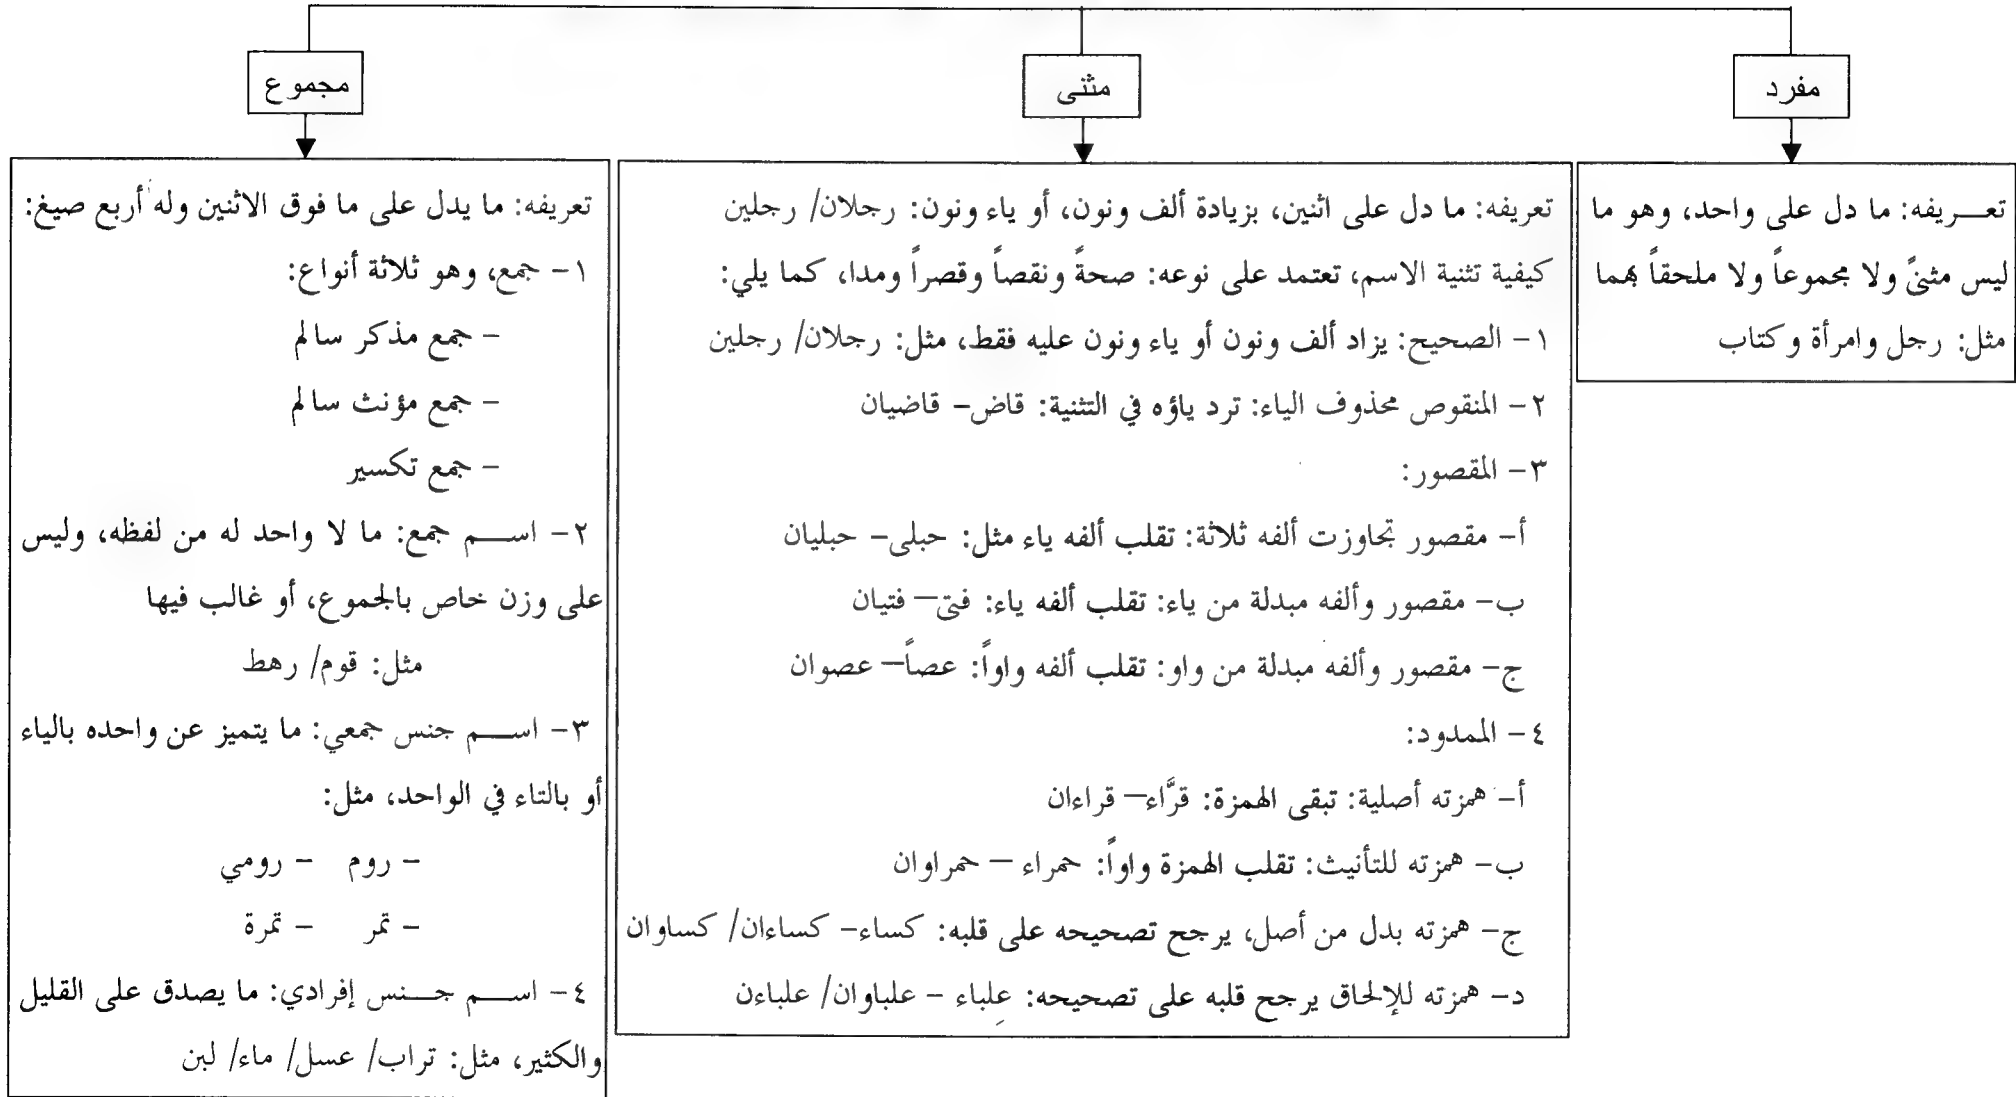 مفرد
تعـــريفه: ما دل على واحد، وهو ما
ليس مثنىً ولا مجموعاً ولا ملحقاً بهما
مثل: رجل وامرأة وكتاب
مثنى
تعريفه: ما دل على اثنين، بزيادة ألف ونون، أو ياء ونون: رجلان/ رجلين
كيفية تثنية الاسم، تعتمد على نوعه: صحةً ونقصاً وقصراً ومدا، كما يلي:
١- الصحيح: يزاد ألف ونون أو ياء ونون عليه فقط، مثل: رجلان/ رجلين
٢- المنقوص محذوف الياء: ترد ياؤه في التثنية: قاض- قاضيان
٣- المقصور:
أ- مقصور تجاوزت ألفه ثلاثة: تقلب ألفه ياء مثل: حبلى- حبليان
ب- مقصور وألفه مبدلة من ياء: تقلب ألفه ياء: فتى— فتيان
ج- مقصور وألفه مبدلة من واو: تقلب ألفه واواً: عصاً— عصوان
٤- الممدود:
أ- همزته أصلية: تبقى الهمزة: قرَّاء— قراءان
ب- همزته للتأنيث: تقلب الهمزة واواً: حمراء — حمراوان
ج- همزته بدل من أصل، يرجح تصحيحه على قلبه: كساء- كساءان/ كساوان
د- همزته للإلحاق يرجح قلبه على تصحيحه: عِلباء - علباوان/ علباءن
مجموع
تعريفه: ما يدل على ما فوق الاثنين وله أربع صيغ:
١- جمع، وهو ثلاثة أنواع:
- جمع مذكر سالم
- جمع مؤنث سالم
- جمع تكسير
٢- اســـم جمع: ما لا واحد له من لفظه، وليس
على وزن خاص بالجموع، أو غالب فيها
مثل: قوم/ رهط
٣- اســـم جنس جمعي: ما يتميز عن واحده بالياء
أو بالتاء في الواحد، مثل:
- روم - رومي
- تمر - تمرة
٤- اســـم جـــنس إفرادي: ما يصدق على القليل
والكثير، مثل: تراب/ عسل/ ماء/ لبن